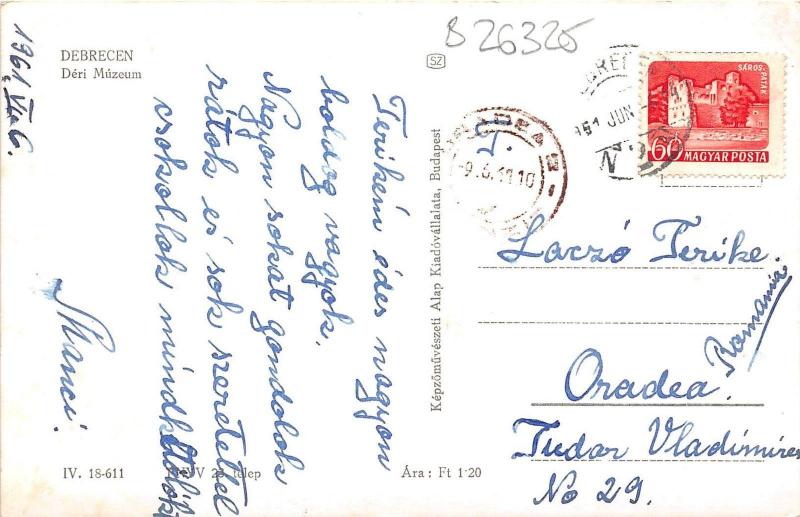 DEBRECEN
Déri Múzeum
1961. VI. 6.
Terikém édes nagyon
boldog vagyok.
Nagyon sokat gondolok
rátok és sok szeretettel
csókollak mindk
Manci.
IV. 18-611
telep
Ára: Ft 1·20
Képzőművészeti Alap Kiadóvállalata, Budapest
SZ
B 26325
ORADEA 2
-9.6.11 10
JUN
SÁROS-PATAK
60 MAGYAR POSTA
Laczó Terike.
Oradea.
Romania
Tudor Vladimires
No 29.